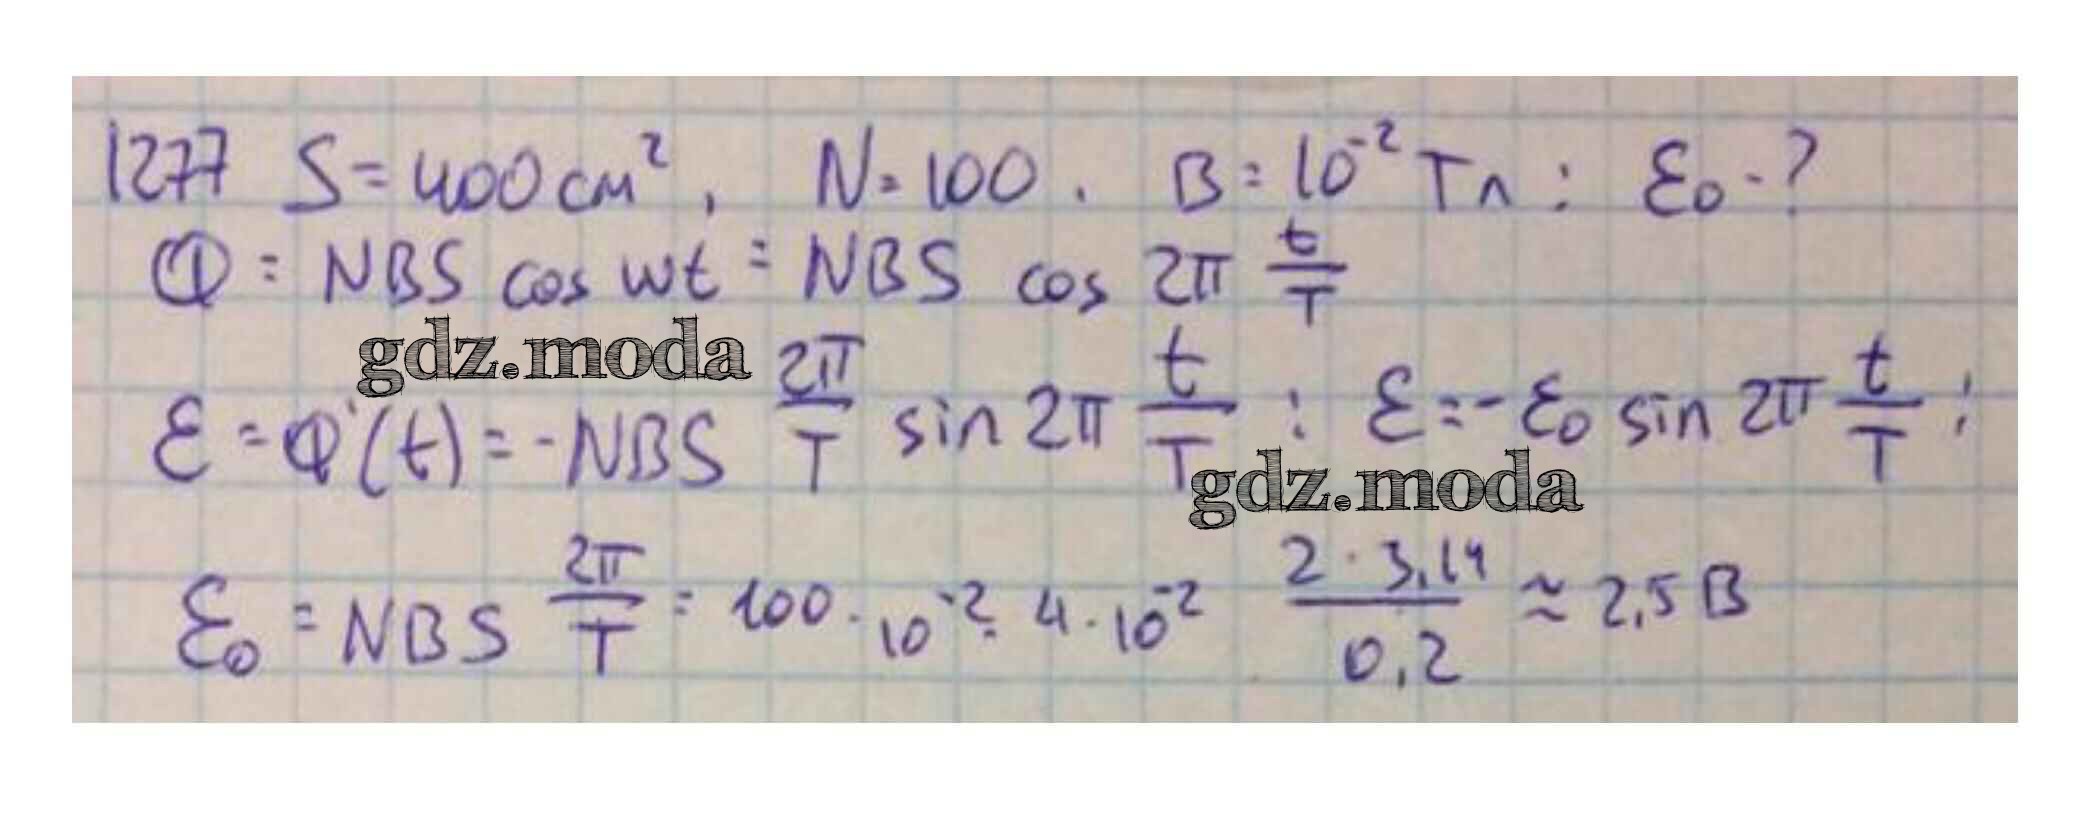 1277 S = 400 см², N = 100. B = 10⁻² Тл; ℰ₀ - ?
Φ = NBS cos ωt = NBS cos 2π t/T
gdz.moda
ℰ = Φ'(t) = -NBS 2π/T sin 2π t/T ; ℰ = -ℰ₀ sin 2π t/T ;
gdz.moda
ℰ₀ = NBS 2π/T = 100 · 10⁻² · 4 · 10⁻² 2 · 3,14/0,2 ≈ 2,5 В